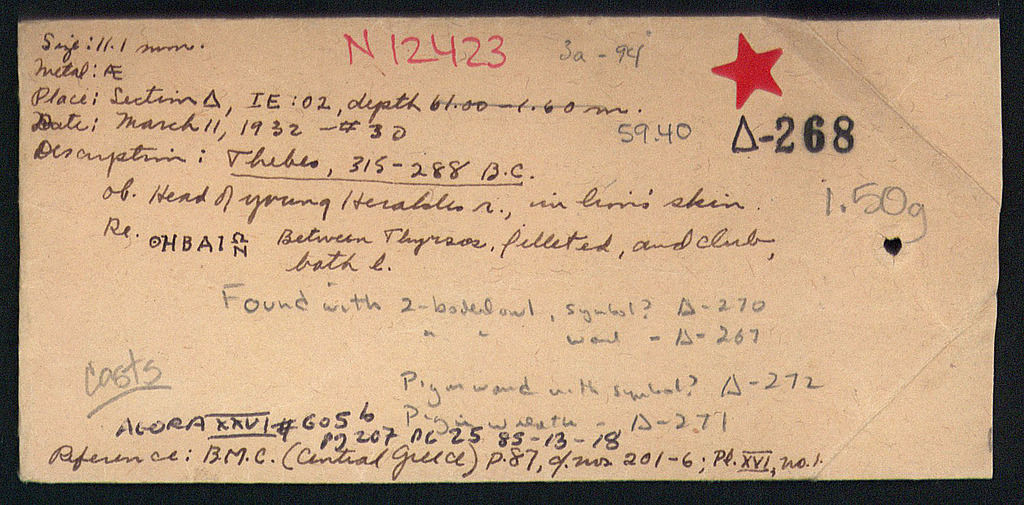 Size: 11.1 mm.
N 12423
3a - 94
Metal: Æ
Place: Section Δ, IE: 02, depth 61.00 - 1.60 m.
Date: March 11, 1932 - # 30
59.40
Δ-268
Description: Thebes, 315-288 B.C.
ob. Head of young Herakles r., in lion's skin.
1.50g
Re. ΘΗΒΑΙΩΝ Between Thyrsos, filleted, and club,
both l.
Found with 2-bodied owl, symbol? Δ-270
" " - Δ-267
casts
Pig on wand with symbol? Δ-272
Pig in wreath - Δ-271
AGORA XXVI # 605 b
PJ 207 PG 25 85-13-18
Reference: B.M.C. (Central Greece) p. 87, cf. nos 201-6; Pl. XVI, no. 1.